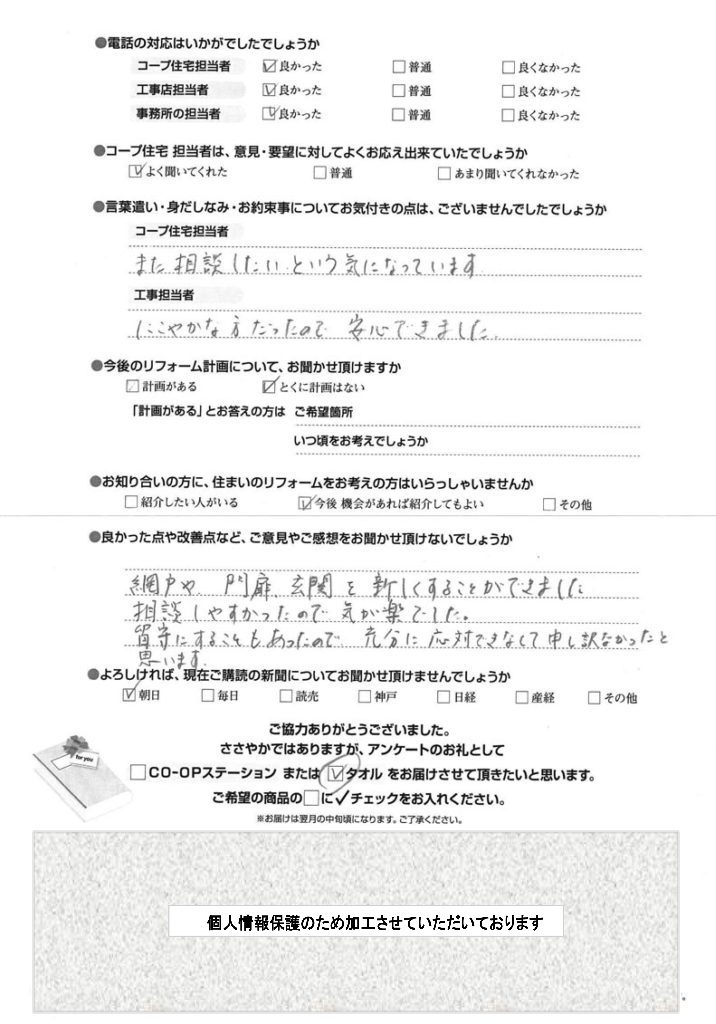 ●電話の対応はいかがでしたでしょうか
コープ住宅担当者 ☑良かった □普通 □良くなかった
工事店担当者 ☑良かった □普通 □良くなかった
事務所の担当者 ☑良かった □普通 □良くなかった
●コープ住宅 担当者は、意見・要望に対してよくお応え出来ていたでしょうか
☑よく聞いてくれた □普通 □あまり聞いてくれなかった
●言葉遣い・身だしなみ・お約束事についてお気付きの点は、ございませんでしたでしょうか
コープ住宅担当者
また相談したいという気になっています
工事担当者
にこやかな方だったので 安心できました。
●今後のリフォーム計画について、お聞かせ頂けますか
□計画がある ☑とくに計画はない
「計画がある」とお答えの方は ご希望箇所
いつ頃をお考えでしょうか
●お知り合いの方に、住まいのリフォームをお考えの方はいらっしゃいませんか
□紹介したい人がいる ☑今後 機会があれば紹介してもよい □その他
●良かった点や改善点など、ご意見やご感想をお聞かせ頂けないでしょうか
網戸や、門扉、玄関を新しくすることができました
相談しやすかったので気が楽でした。
留守にすることもあったので 充分に応対できなくて申し訳なかったと
思います。
●よろしければ、現在ご購読の新聞についてお聞かせ頂けませんでしょうか
☑朝日 □毎日 □読売 □神戸 □日経 □産経 □その他
ご協力ありがとうございました。
ささやかではありますが、アンケートのお礼として
for you
□CO-OPステーション または ☑タオル をお届けさせて頂きたいと思います。
ご希望の商品の□に✓チェックをお入れください。
※お届けは翌月の中旬頃になります。ご了承ください。
個人情報保護のため加工させていただいております